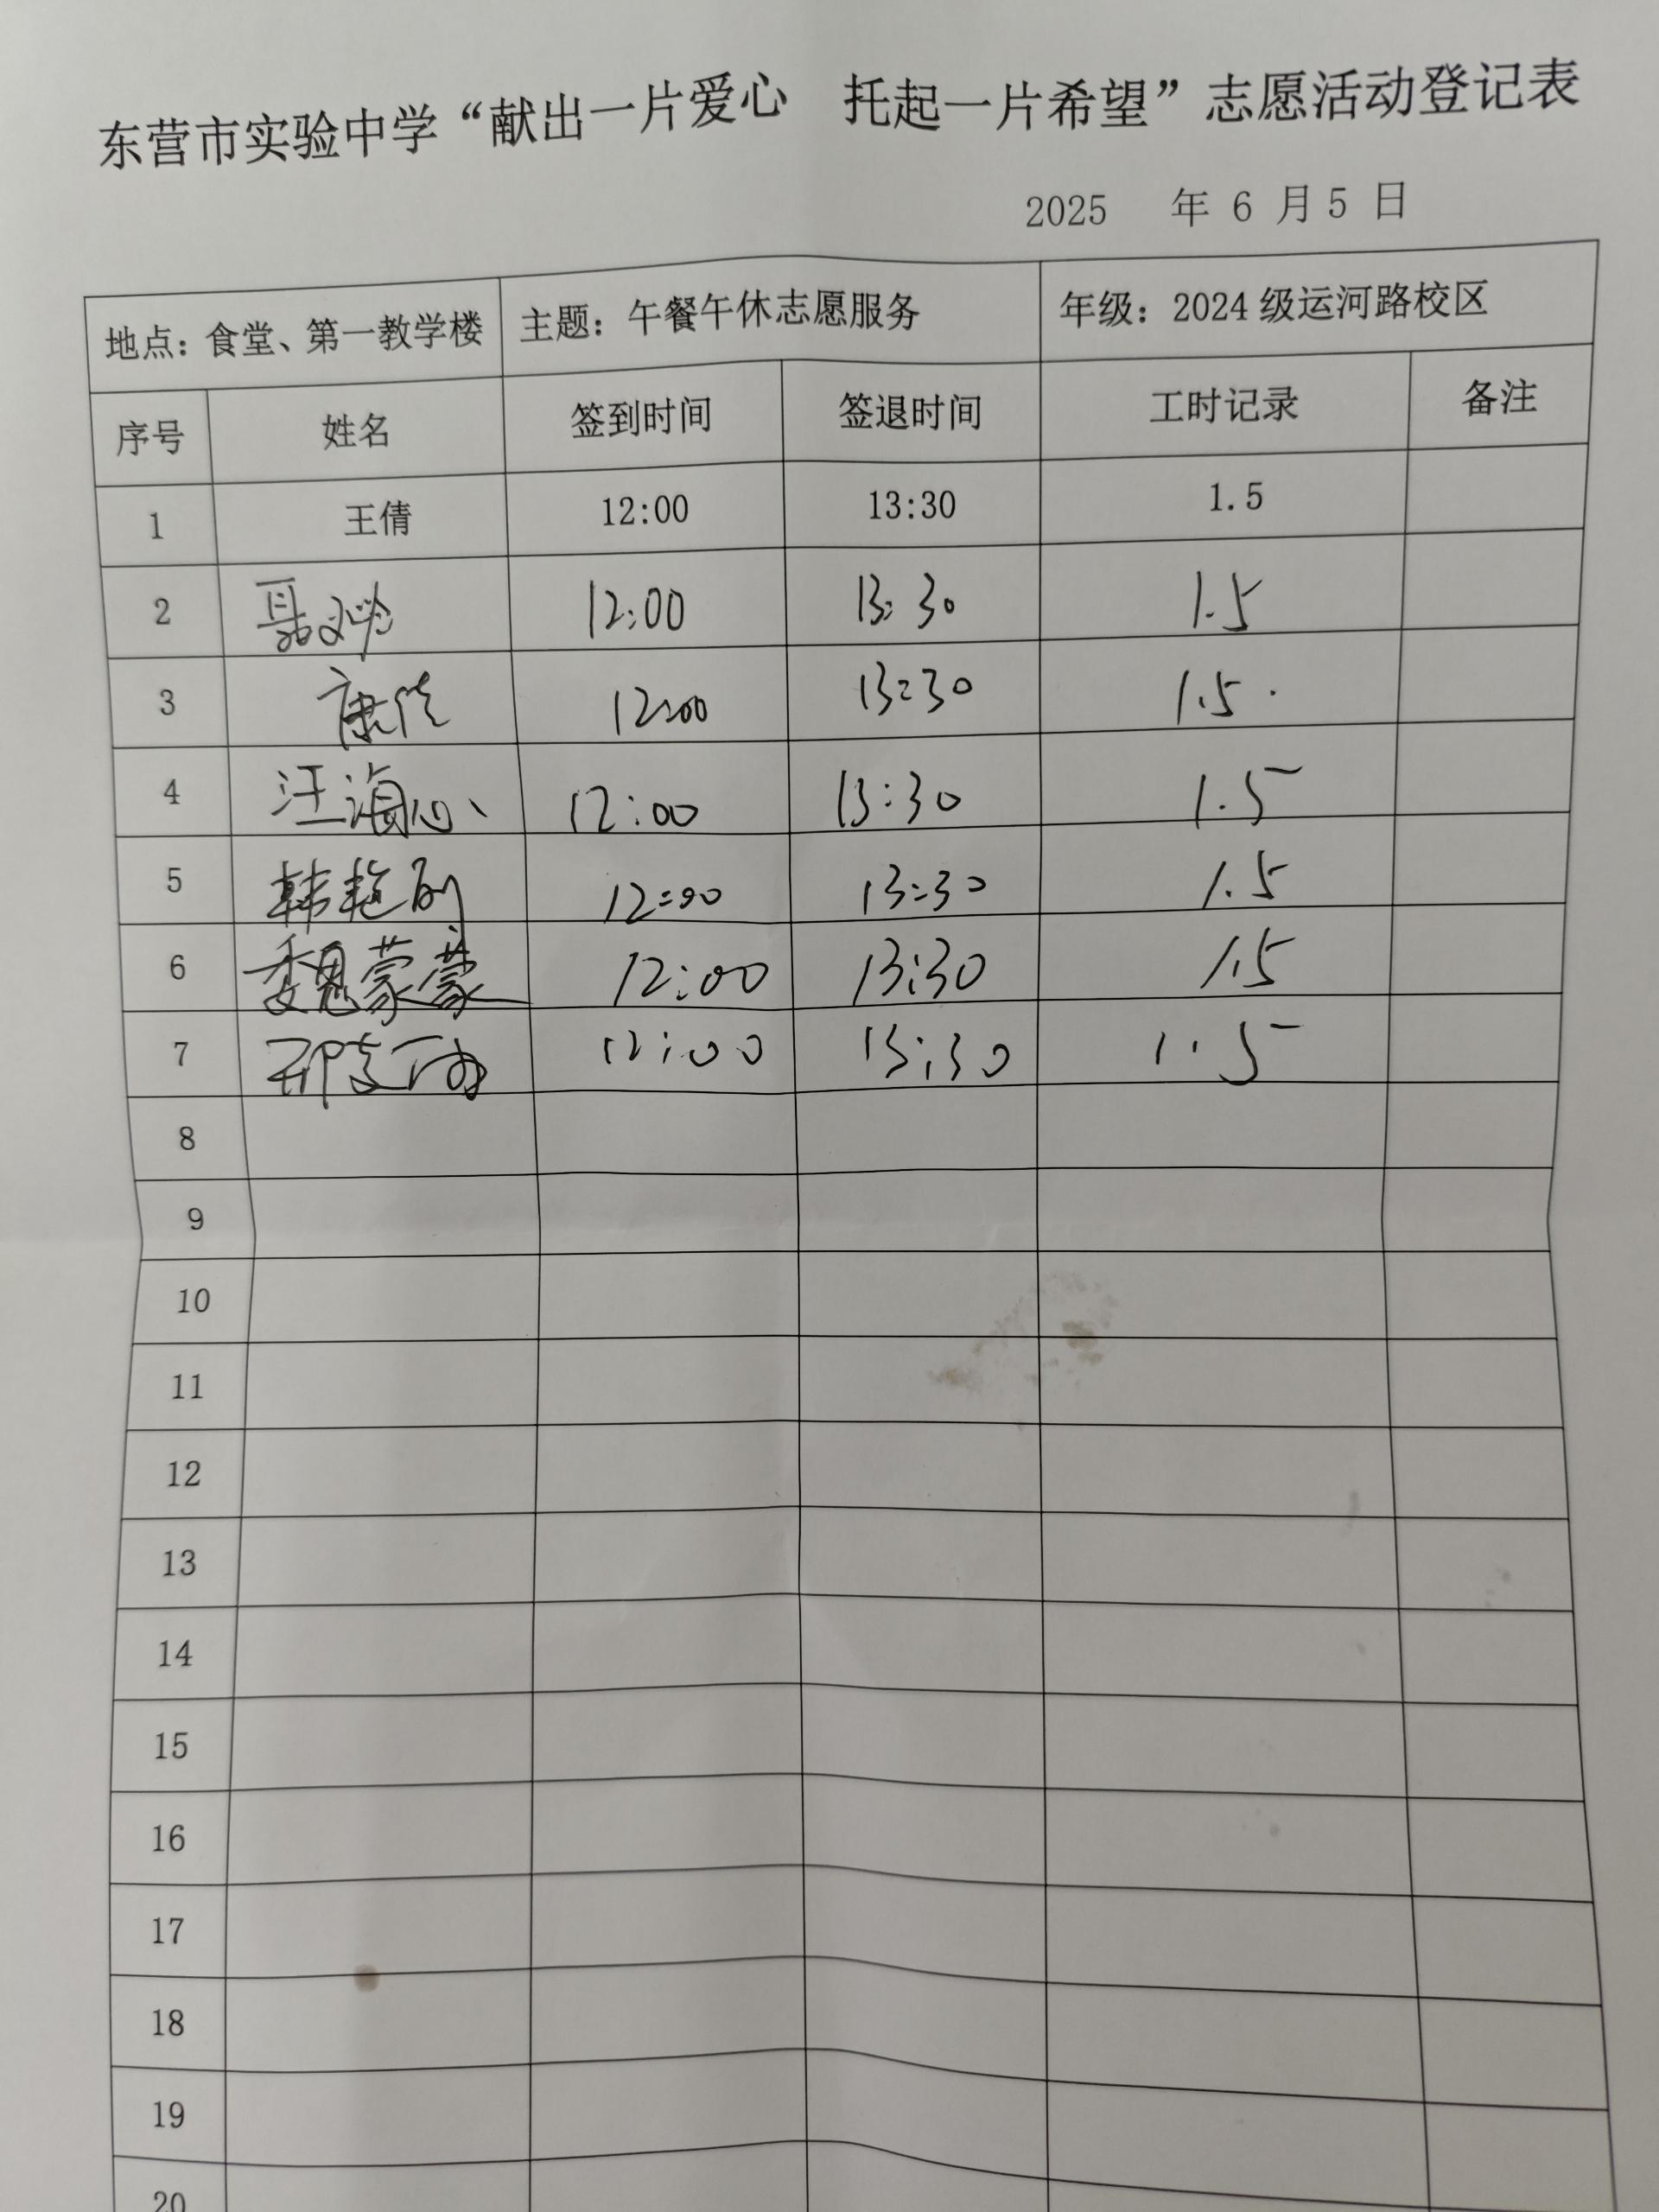 东营市实验中学“献出一片爱心 托起一片希望”志愿活动登记表
2025 年 6 月 5 日
地点：食堂、第一教学楼 主题：午餐午休志愿服务 年级：2024 级运河路校区
序号 姓名 签到时间 签退时间 工时记录 备注
1 王倩 12:00 13:30 1.5
2 12:00 13:30 1.5
3 康 12:00 13:30 1.5
4 汪海心 12:00 13:30 1.5
5 韩艳 12:00 13:30 1.5
6 魏蒙蒙 12:00 13:30 1.5
7 邢 12:00 13:30 1.5
8
9
10
11
12
13
14
15
16
17
18
19
20